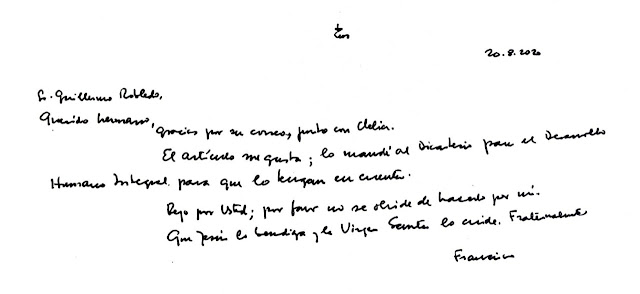 20.8.2020
Sr. Guillermo Robledo,
Querido hermano,
gracias por su correo, junto con Clelia.
El artículo me gusta; lo mandé al Dicasterio para el Desarrollo
Humano Integral para que lo tengan en cuenta.
Rezo por Usted; por favor no se olvide de hacerlo por mí.
Que Jesús lo bendiga y la Virgen Santa lo cuide. Fraternalmente
Francisco